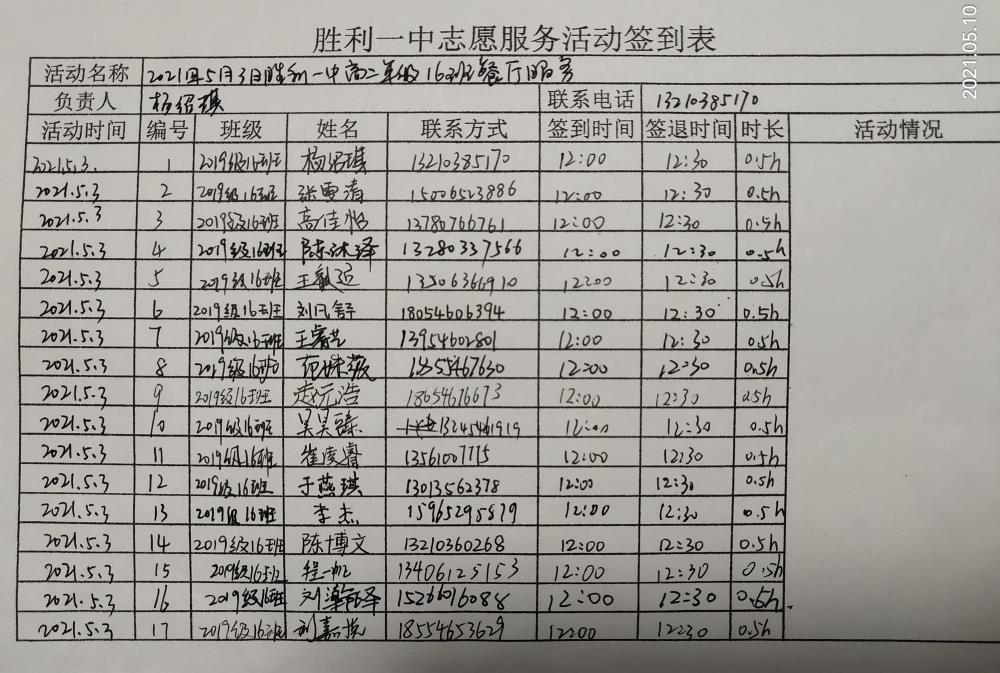 2021.05.10
胜利一中志愿服务活动签到表
活动名称 2021年5月3日胜利一中高二年级16班餐厅服务
负责人 杨绍琪 联系电话 13210385170
活动时间 编号 班级 姓名 联系方式 签到时间 签退时间 时长 活动情况
2021.5.3. 1 2019级16班 杨绍琪 13210385170 12:00 12:30 0.5h
2021.5.3 2 2019级16班 张雯清 15006523886 12:00 12:30 0.5h
2021.5.3 3 2019级16班 高佳怡 13780766761 12:00 12:30 0.5h
2021.5.3 4 2019级16班 陈沐泽 13280337566 12:00 12:30 0.5h
2021.5.3 5 2019级16班 王 13506366910 12:00 12:30 0.5h
2021.5.3 6 2019级16班 刘凡舒 18054606394 12:00 12:30 0.5h
2021.5.3 7 2019级16班 王 13954602801 12:00 12:30 0.5h
2021.5.3 8 2019级16班 范姝薇 12:00 12:30 0.5h
2021.5.3 9 2019级16班 赵元浩 18654676673 12:00 12:30 0.5h
2021.5.3 10 2019级16班 吴昊臻 13245461919 12:00 12:30 0.5h
2021.5.3 11 2019级16班 崔度睿 13561007775 12:00 12:30 0.5h
2021.5.3 12 2019级16班 于燕琪 13013562378 12:00 12:30 0.5h
2021.5.3 13 2019级16班 李杰 15965295879 12:00 12:30 0.5h
2021.5.3 14 2019级16班 陈博文 13210360268 12:00 12:30 0.5h
2021.5.3 15 2019级16班 程一 13406125153 12:00 12:30 0.5h
2021.5.3 16 2019级16班 刘 泽 15266016088 12:00 12:30 0.5h
2021.5.3 17 2019级16班 刘嘉悦 18554653629 12:00 12:30 0.5h